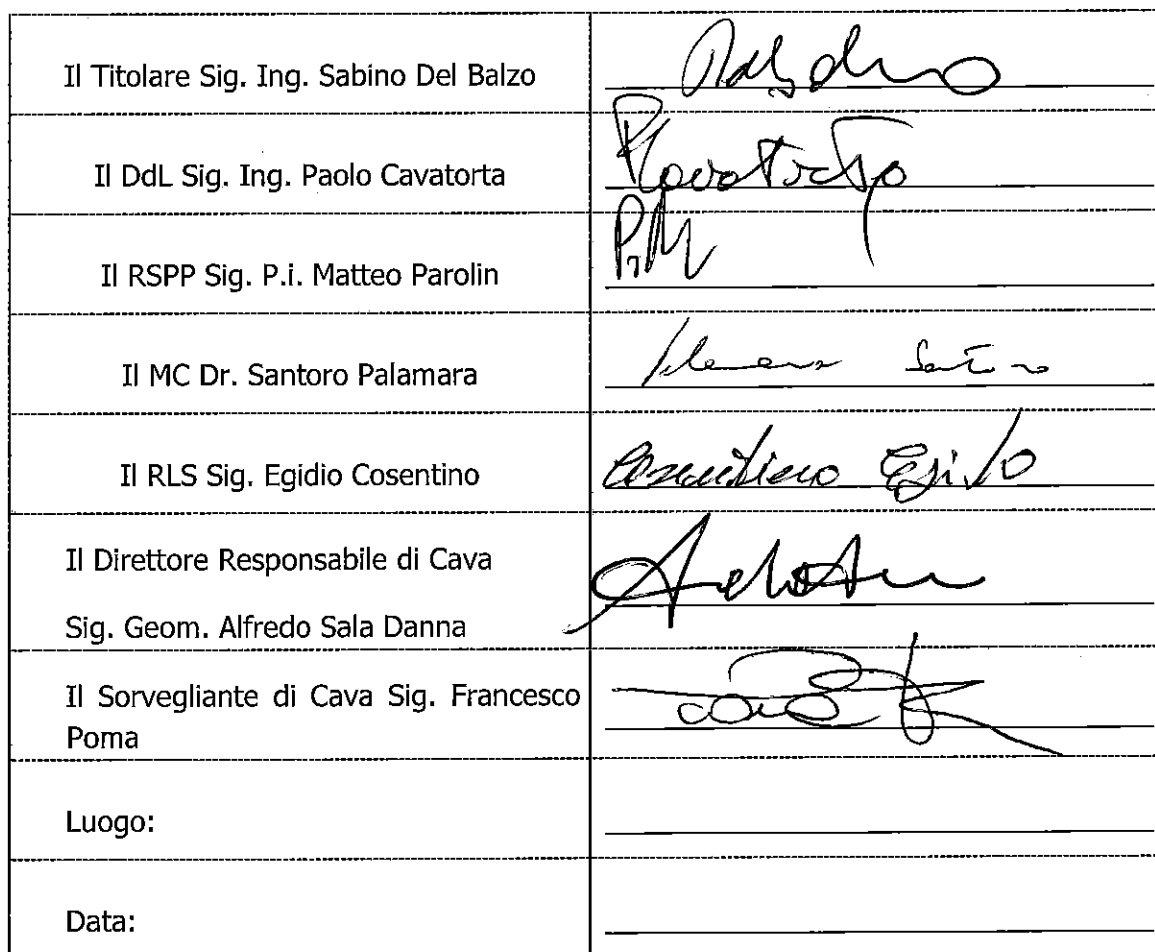 Il Titolare Sig. Ing. Sabino Del Balzo
Il DdL Sig. Ing. Paolo Cavatorta
Il RSPP Sig. P.i. Matteo Parolin
Il MC Dr. Santoro Palamara
Il RLS Sig. Egidio Cosentino
Cosentino Egidio
Il Direttore Responsabile di Cava
Sig. Geom. Alfredo Sala Danna
Il Sorvegliante di Cava Sig. Francesco
Poma
Luogo:
Data: